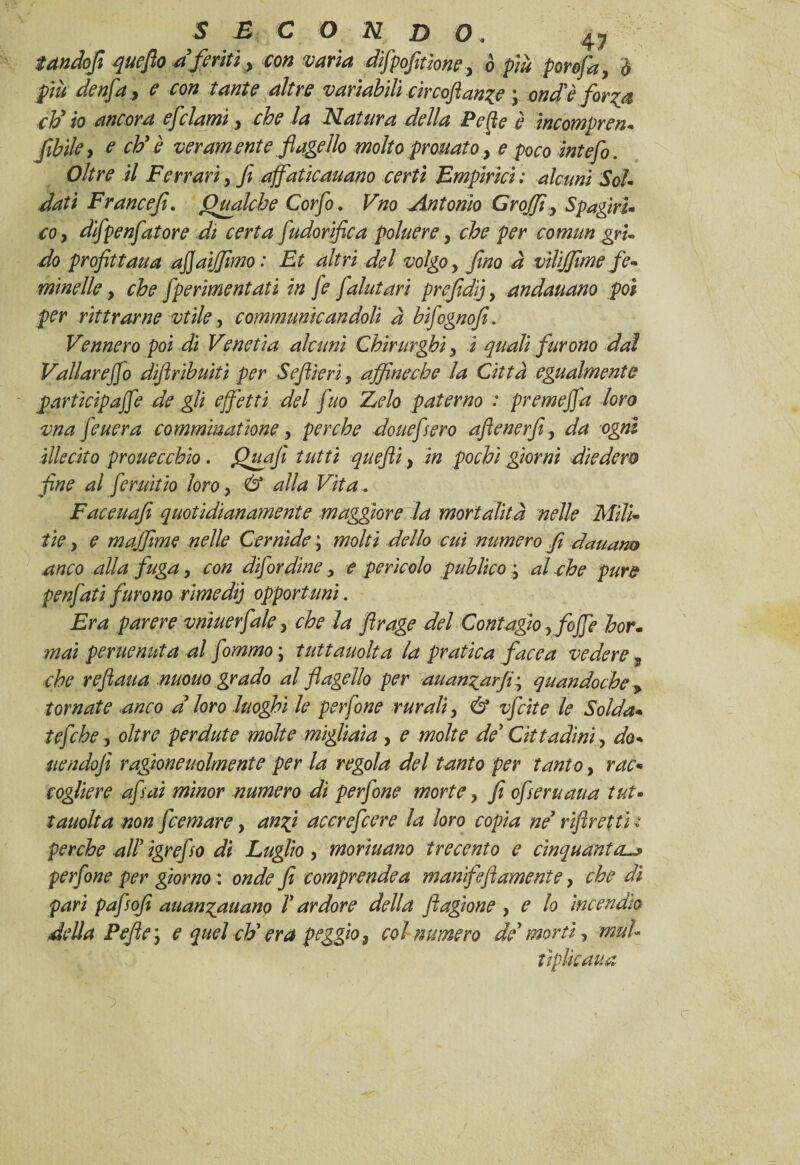 SECONDO. 47
tandoſi queſto a' feriti, con varia diſpoſitione, ò più poroſa, ò
più denſa, e con tante altre variabili circoſtanze; ond'è forza
ch' io ancora eſclami, che la Natura della Peſte è incompren-
ſibile, e ch' è veramente flagello molto prouato, e poco inteſo.
Oltre il Ferrari, ſi affaticauano certi Empirici: alcuni Sol-
dati Franceſi. Qualche Corſo. Vno Antonio Groſſi, Spagiri-
co, diſpenſatore di certa ſudorifica poluere, che per comun gri-
do profittaua aſſaiſſimo: Et altri del volgo, ſino à viliſſime fe-
minelle, che ſperimentati in ſe ſalutari preſidij, andauano poi
per rittrarne vtile, communicandoli à biſognoſi.
Vennero poi di Venetia alcuni Chirurghi, i quali furono dal
Vallareſſo diſtribuiti per Seſtieri, affineche la Città egualmente
participaſſe de gli effetti del ſuo Zelo paterno: premeſſa loro
vna ſeuera comminatione, perche doueſsero aſtenerſi, da ogni
illecito prouecchio. Quaſi tutti queſti, in pochi giorni diedero
fine al ſeruitio loro, & alla Vita.
Faceuaſi quotidianamente maggiore la mortalità nelle Mili-
tie, e maſſime nelle Cernide; molti dello cui numero ſi dauano
anco alla fuga, con diſordine, e pericolo publico; al che pure
penſati furono rimedij opportuni.
Era parere vniuerſale, che la ſtrage del Contagio, foſſe hor-
mai peruenuta al ſommo; tuttauolta la pratica facea vedere,
che reſtaua nuouo grado al flagello per auanzarſi; quandoche,
tornate anco a' loro luoghi le perſone rurali, & vſcite le Solda-
teſche, oltre perdute molte migliaia, e molte de' Cittadini, do-
uendoſi ragioneuolmente per la regola del tanto per tanto, rac-
cogliere aſsai minor numero di perſone morte, ſi oſseruaua tut-
tauolta non ſcemare, anzi accreſcere la loro copia ne' riſtretti:
perche all' igreſso di Luglio, moriuano trecento e cinquanta
perſone per giorno: onde ſi comprendea manifeſtamente, che di
pari paſsoſi auanzauano l' ardore della ſtagione, e lo incendio
della Peſte; e quel ch' era peggio, col numero de' morti, mul-
tiplicaua